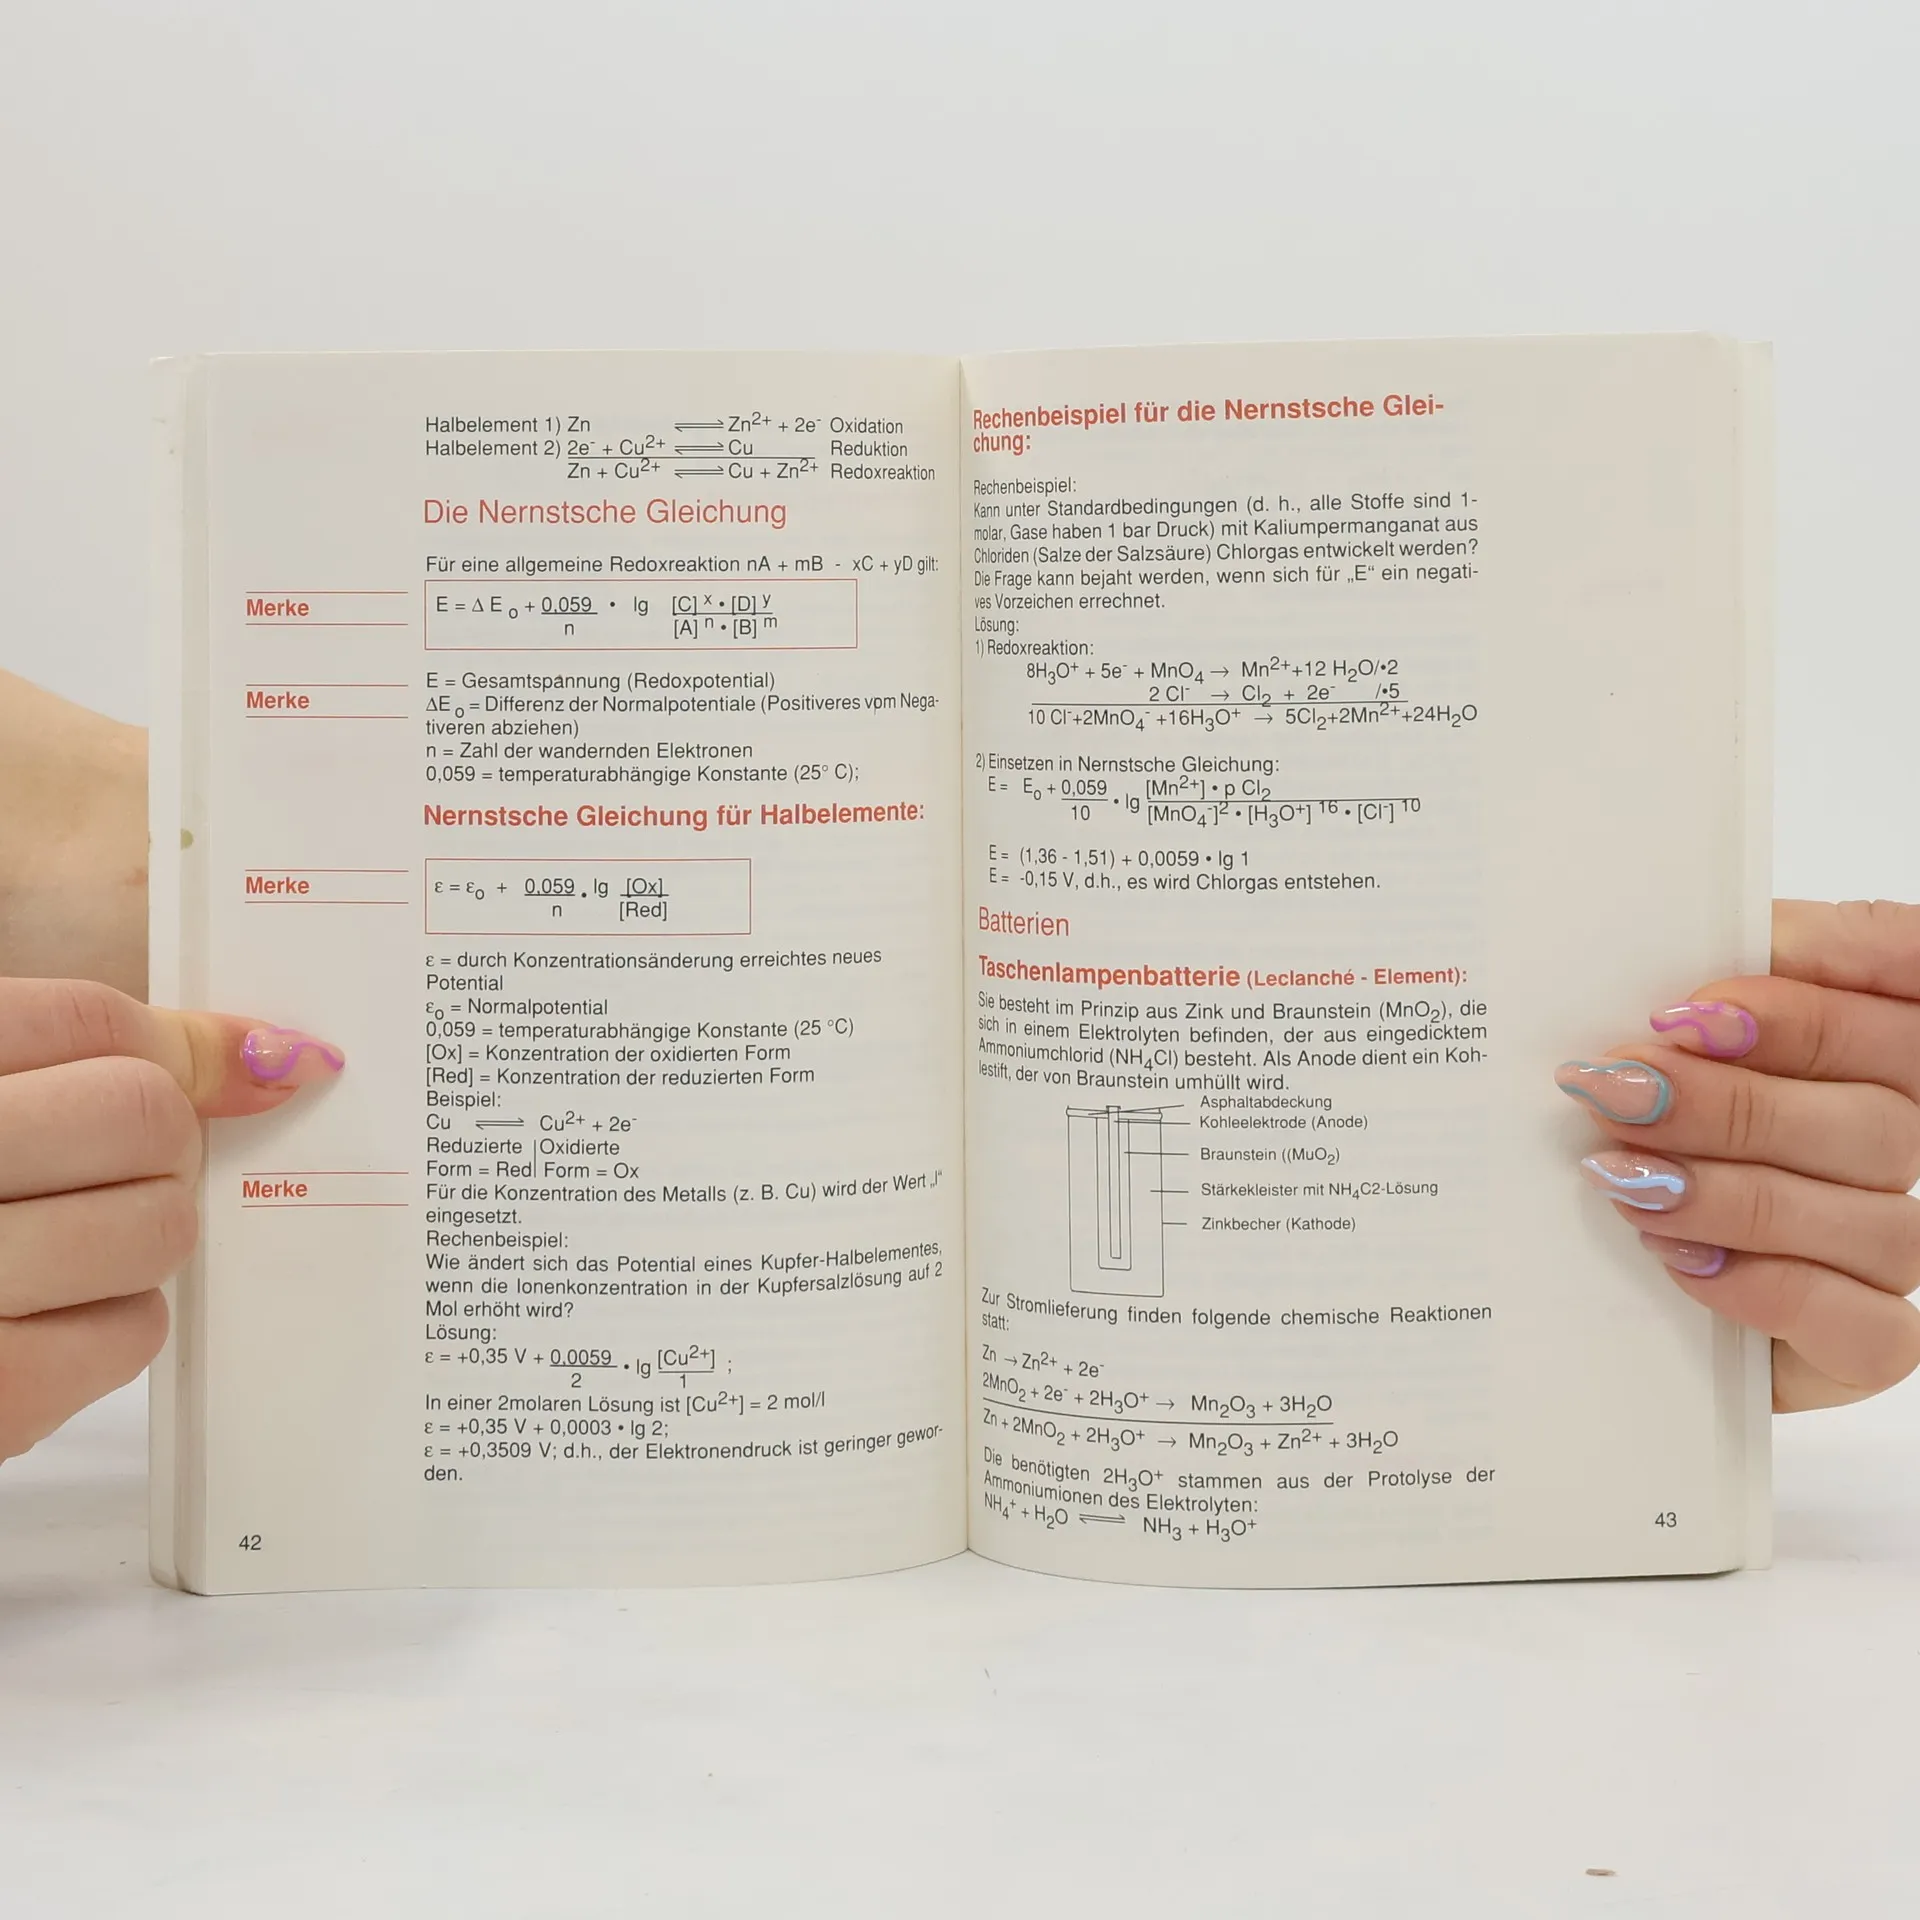 Halbelement 1) Zn ⇌ Zn²⁺ + 2e⁻ Oxidation
Halbelement 2) 2e⁻ + Cu²⁺ ⇌ Cu Reduktion
Zn + Cu²⁺ ⇌ Cu + Zn²⁺ Redoxreaktion
Die Nernstsche Gleichung
Für eine allgemeine Redoxreaktion nA + mB - xC + yD gilt:
Merke
E = Δ E₀ + 0,059/n • lg [C]ˣ • [D]ʸ / [A]ⁿ • [B]ᵐ
Merke
E = Gesamtspannung (Redoxpotential)
ΔE₀ = Differenz der Normalpotentiale (Positiveres vom Nega-
tiveren abziehen)
n = Zahl der wandernden Elektronen
0,059 = temperaturabhängige Konstante (25° C);
Nernstsche Gleichung für Halbelemente:
Merke
ε = ε₀ + 0,059/n • lg [Ox]/[Red]
ε = durch Konzentrationsänderung erreichtes neues
Potential
ε₀ = Normalpotential
0,059 = temperaturabhängige Konstante (25 °C)
[Ox] = Konzentration der oxidierten Form
[Red] = Konzentration der reduzierten Form
Beispiel:
Cu ⇌ Cu²⁺ + 2e⁻
Reduzierte | Oxidierte
Form = Red | Form = Ox
Merke
Für die Konzentration des Metalls (z. B. Cu) wird der Wert „l“
eingesetzt.
Rechenbeispiel:
Wie ändert sich das Potential eines Kupfer-Halbelementes,
wenn die Ionenkonzentration in der Kupfersalzlösung auf 2
Mol erhöht wird?
Lösung:
ε = +0,35 V + 0,0059/2 • lg [Cu²⁺]/1 ;
In einer 2molaren Lösung ist [Cu²⁺] = 2 mol/l
ε = +0,35 V + 0,0003 • lg 2;
ε = +0,3509 V; d.h., der Elektronendruck ist geringer gewor-
den.
42
Rechenbeispiel für die Nernstsche Glei-
chung:
Rechenbeispiel:
Kann unter Standardbedingungen (d. h., alle Stoffe sind 1-
molar, Gase haben 1 bar Druck) mit Kaliumpermanganat aus
Chloriden (Salze der Salzsäure) Chlorgas entwickelt werden?
Die Frage kann bejaht werden, wenn sich für „E“ ein negati-
ves Vorzeichen errechnet.
Lösung:
1) Redoxreaktion:
8H₃O⁺ + 5e⁻ + MnO₄ → Mn²⁺+12 H₂O/•2
2 Cl⁻ → Cl₂ + 2e⁻ /•5
10 Cl⁻+2MnO₄⁻ +16H₃O⁺ → 5Cl₂+2Mn²⁺+24H₂O
2) Einsetzen in Nernstsche Gleichung:
E = E₀ + 0,059/10 • lg [Mn²⁺] • p Cl₂ / [MnO₄⁻]² • [H₃O⁺]¹⁶ • [Cl⁻]¹⁰
E = (1,36 - 1,51) + 0,0059 • lg 1
E = -0,15 V, d.h., es wird Chlorgas entstehen.
Batterien
Taschenlampenbatterie (Leclanché - Element):
Sie besteht im Prinzip aus Zink und Braunstein (MnO₂), die
sich in einem Elektrolyten befinden, der aus eingedicktem
Ammoniumchlorid (NH₄Cl) besteht. Als Anode dient ein Koh-
lestift, der von Braunstein umhüllt wird.
Asphaltabdeckung
Kohleelektrode (Anode)
Braunstein ((MuO₂)
Stärkekleister mit NH₄C2-Lösung
Zinkbecher (Kathode)
Zur Stromlieferung finden folgende chemische Reaktionen
statt:
Zn → Zn²⁺ + 2e⁻
2MnO₂ + 2e⁻ + 2H₃O⁺ → Mn₂O₃ + 3H₂O
Zn + 2MnO₂ + 2H₃O⁺ → Mn₂O₃ + Zn²⁺ + 3H₂O
Die benötigten 2H₃O⁺ stammen aus der Protolyse der
Ammoniumionen des Elektrolyten:
NH₄⁺ + H₂O ⇌ NH₃ + H₃O⁺
43